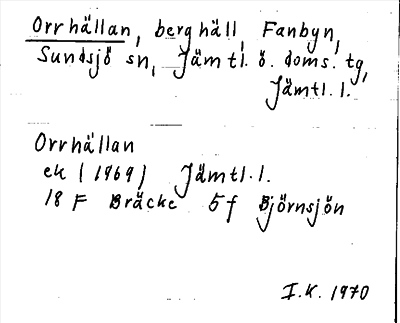 Orrhällan, berghäll, Fanbyn,
Sundsjö sn, Jämtl. ö. doms. tg,
Jämtl. l.
Orrhällan
ek (1969) Jämtl. l.
18 F Bräcke 5f Björnsjön
I.K. 1970